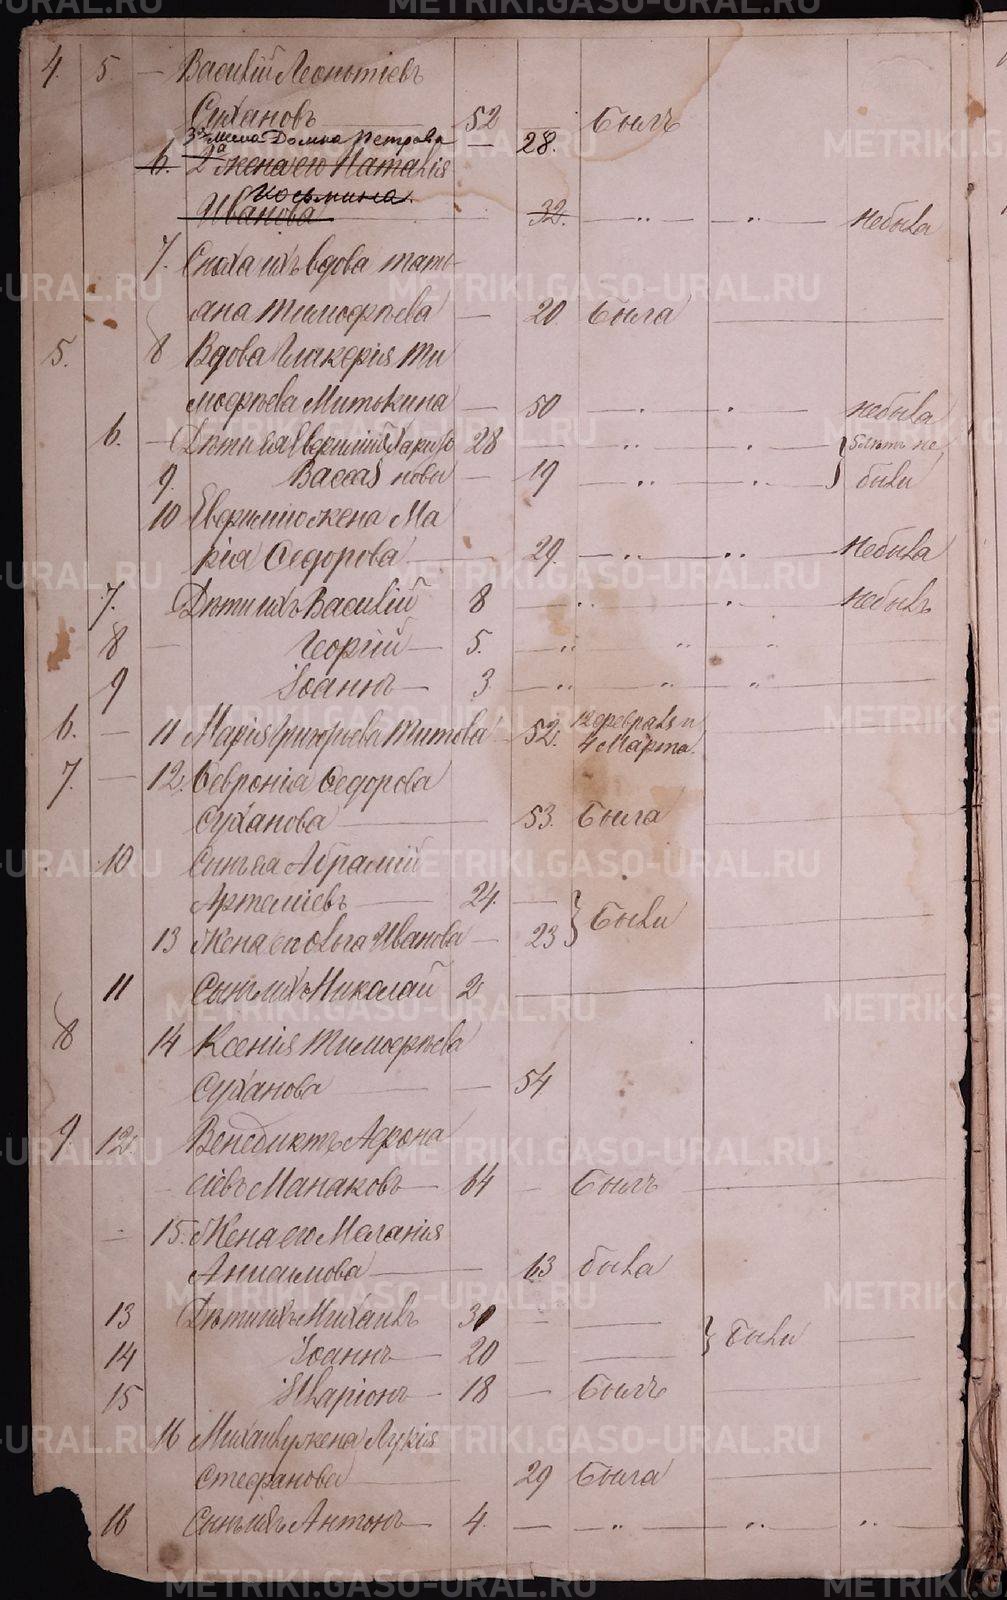 4. 5. — Василій Леонтіевъ
Сухановъ 52 — Былъ
3я жена Домна Петрова — 28.
6. 2я жена его Наталія
Козьмина
Иванова 32. — „ — „ — небыла
7. Сноха ихъ вдова Тать-
яна Тимофѣева — 20 Была
5. 8 Вдова Гликерія Ти
мофѣева Митькина — 50 — „ — „ — небыла
6. — Дѣти ея Евфимій Харито 28 — „ — „ — } 5 лѣтъ не
9. Васса} новы — 19 — „ — „ — } были
10 Евфимію жена Ма
рія Ѳедорова — 29. — „ — „ — небыла
7. Дѣти ихъ Василій 8 — „ — „ — небылъ
8 — Георгій — 5. — „ — „ — „ —
9 Іоаннъ — 3 — „ — „ — „ —
6. — 11 Марія Григорьева Титова 52. 12 февраля и
4 Марта.
7. — 12. Ѳевронія Ѳедорова
Суханова — 53. Была
10. Сынъ ея Абрамій
Артеміевъ — 24. —
13 Жена его Ольга Иванова — 23 } Были
11 Сынъ ихъ Николай 2 —
8 14 Ксенія Тимофѣева
Суханова — 54
9. 12. Венедиктъ Афона
сіевъ Манаковъ — 64 — Былъ
15. Жена его Меланія
Анисимова — 63 была
13 Дѣти ихъ Михаилъ 30 — —
14 Іоаннъ — 20 — — } Были
15 Иларіонъ — 18 — Былъ
16 Михаилу жена Лукія
Стефанова — 29 Была
16 Сынъ ихъ Антонъ — 4. — „ — „ „
METRIKI.GASO-URAL.RU